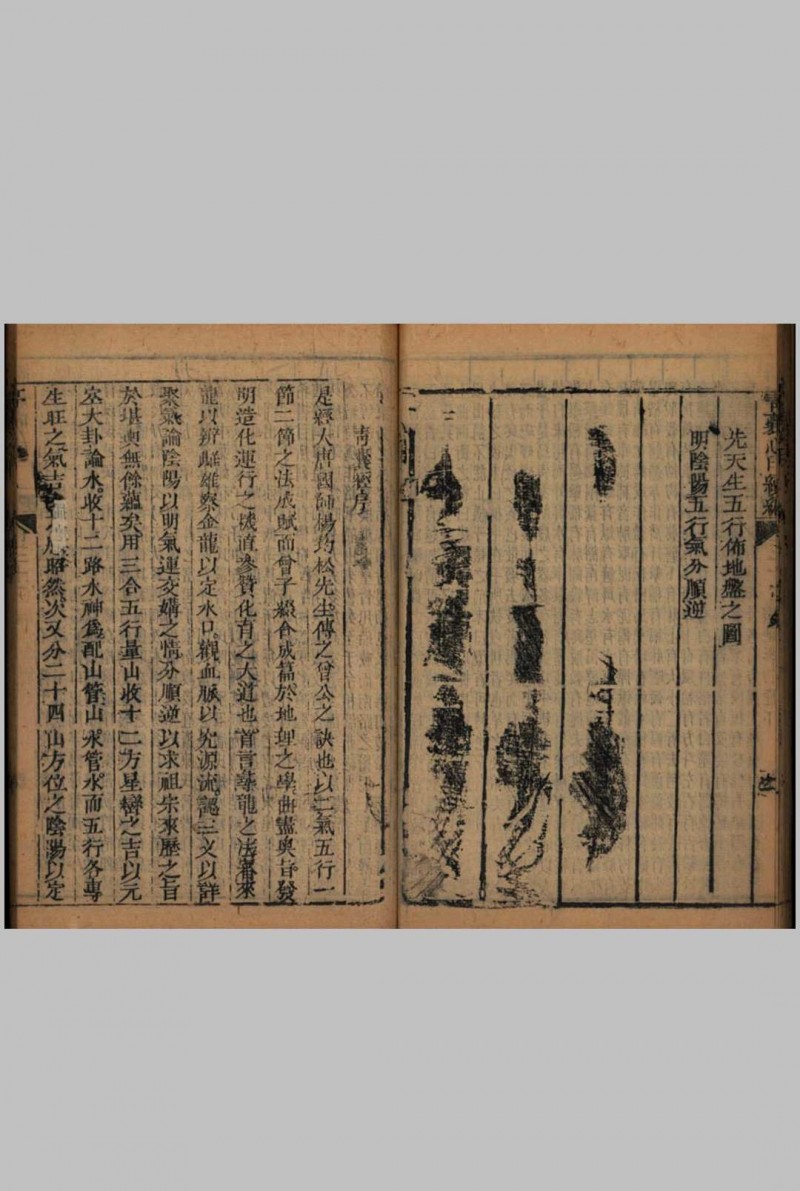 先天生五行佈地盤之圖
明陰陽五行氣分順逆
青囊經序
是經大唐國師楊筠松先生傳之曾公之訣也以二氣五行一
節二節之法成賦而曾子纇合成篇於地理之學曲盡奥旨發
明造化運行之機直參贊化育之大道也首言尋龍之法蓄來
龍以辨雌雄察金龍以定水口觀血脈以究源流認三叉以詳
聚氣論陰陽以明氣運交媾之情分順逆以求祖宗來歷之旨
於堪輿無餘蘊矣用三合五行量山收十二方星巒之吉以元
空大卦論水收十二路水神為配山管山水管水而五行各專
生旺之氣吉昭然次又分二十四山方位之陰陽以定